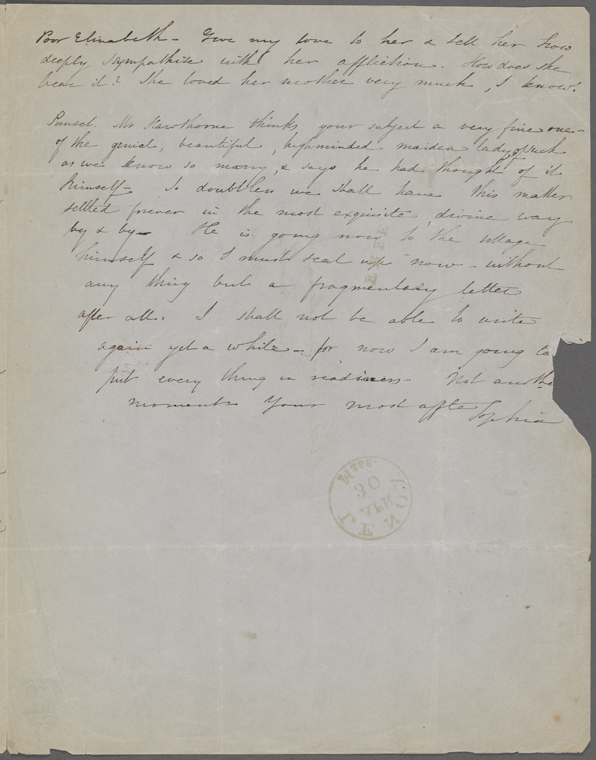 Poor Elizabeth - Give my love to her & tell her how
deeply I sympathize with her affliction. How does she
bear it? She loved her mother very much, I know.
Sunset Mr Hawthorne thinks your subject a very fine one -
of the genial, beautiful, highminded maiden lady, of such
as we know so many, & says he had thought of it
himself - So doubtless we shall have this matter
settled forever in the most exquisite, divine way
by & by - He is going now to the village
himself & so I must seal up now - without
any thing but a fragmentary letter
after all. I shall not be able to write
again yet a while - for now I am going to
put every thing in readiness - Not another
moment Your most affte Sophia
LENOX
JAN
30
Mass.